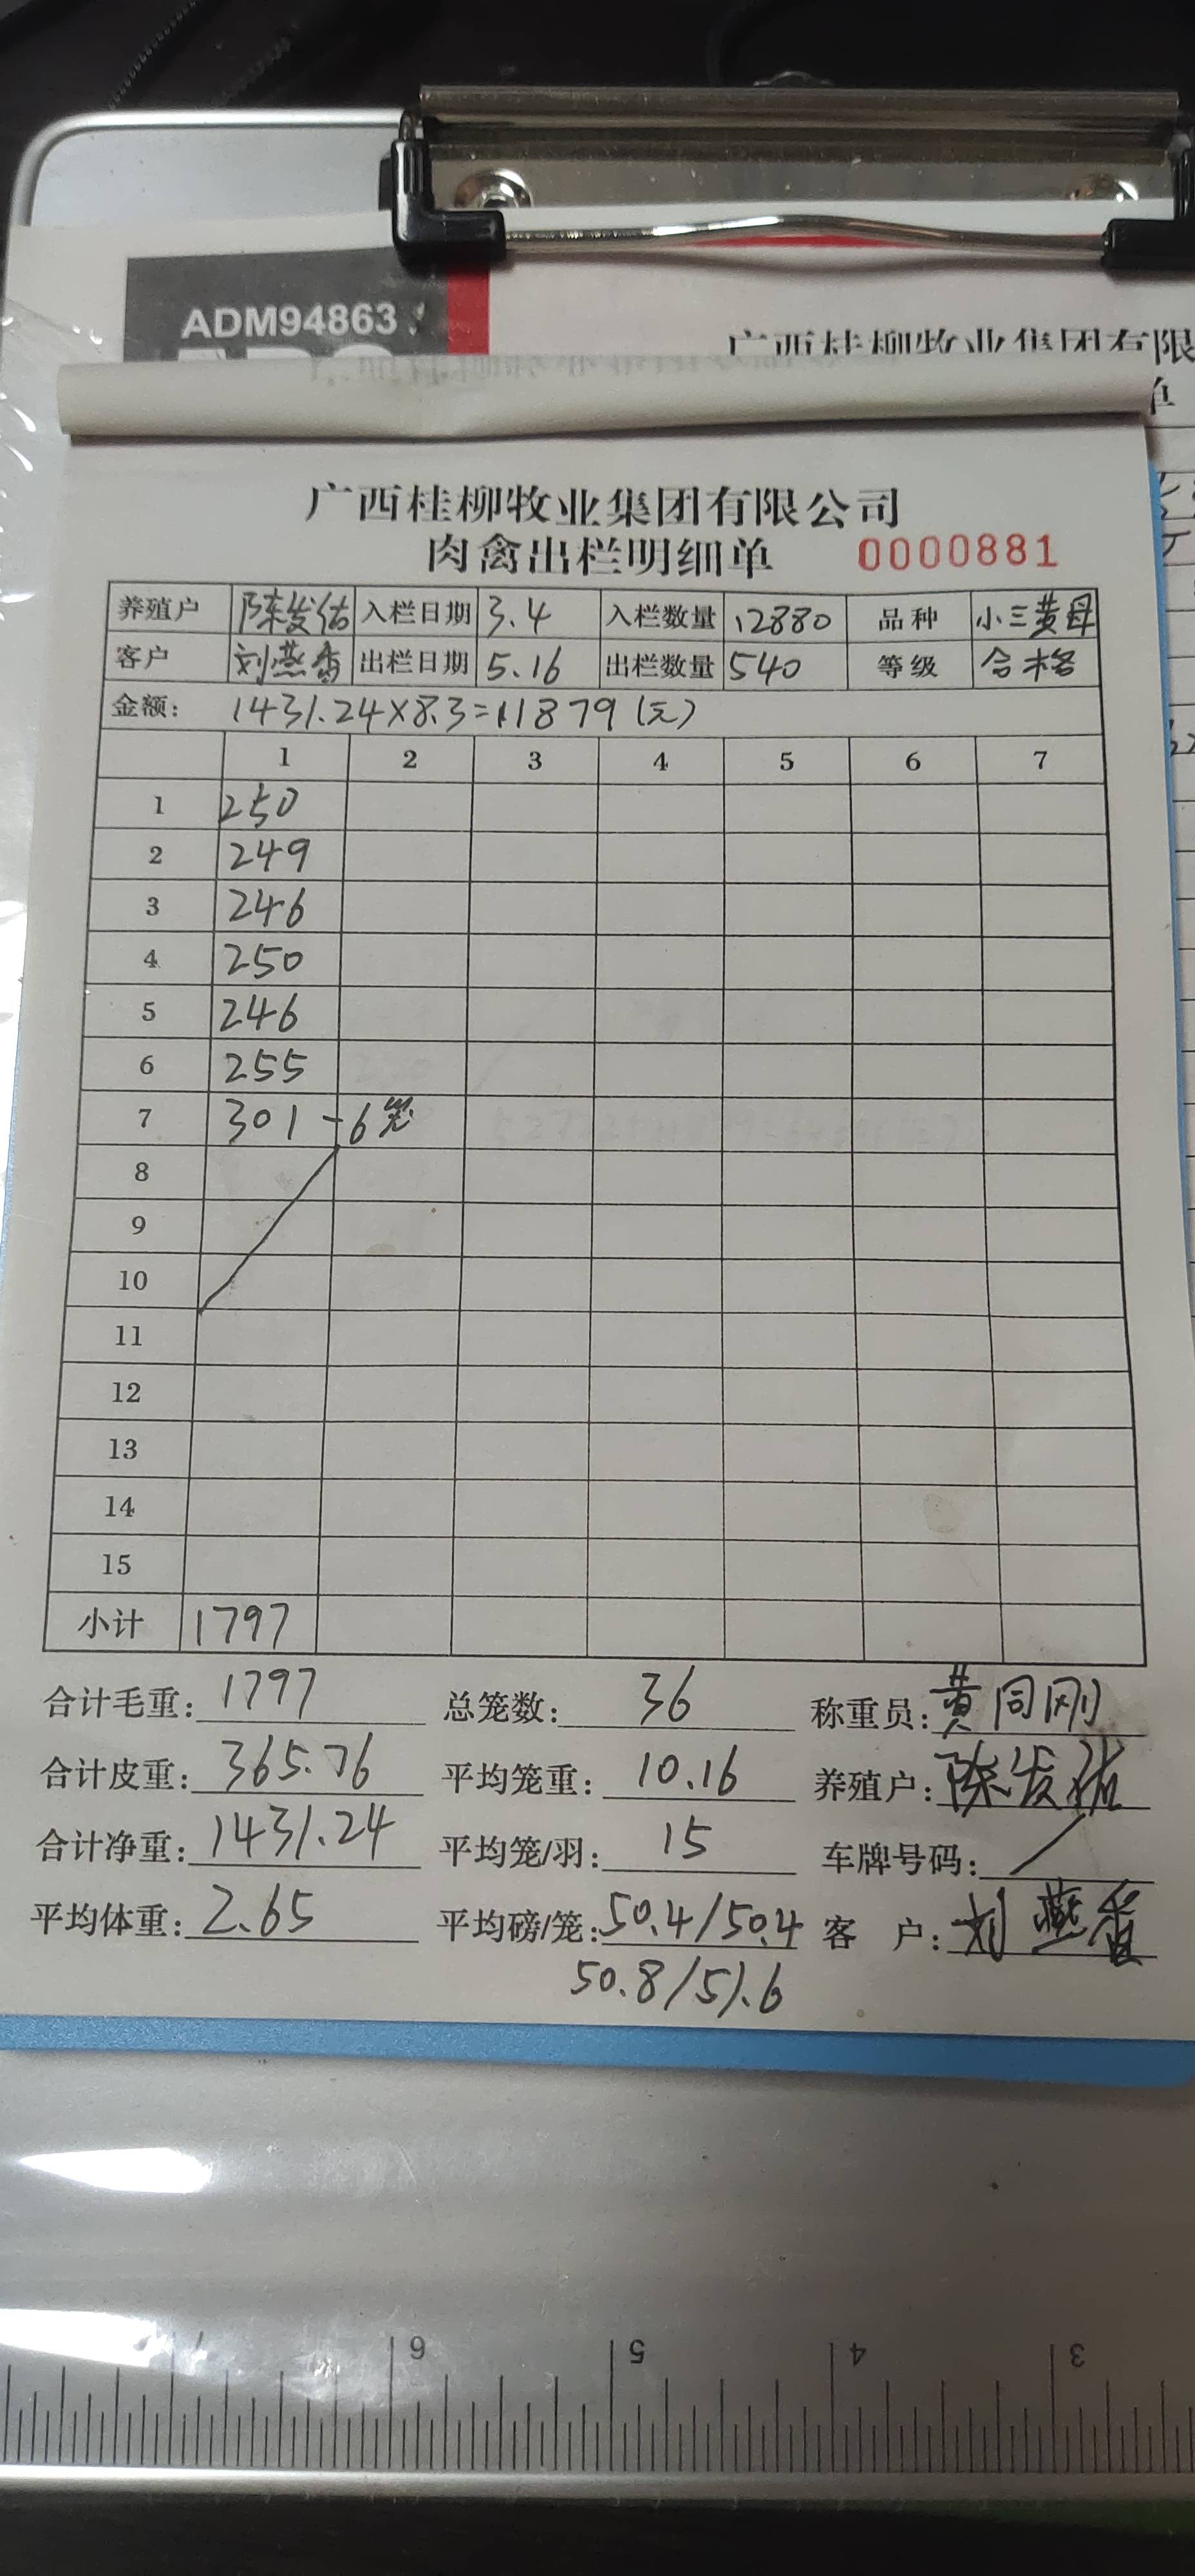 ADM94863
广西桂柳牧业集团有限
单
广西桂柳牧业集团有限公司
肉禽出栏明细单 0000881
养殖户 陈发佑 入栏日期 3.4 入栏数量 12880 品种 小三黄母
客户 刘燕香 出栏日期 5.16 出栏数量 540 等级 合格
金额: 1431.24×8.3=11879(元)
1 2 3 4 5 6 7
1 250
2 249
3 246
4 250
5 246
6 255
7 301-6笼
8
9
10
11
12
13
14
15
小计 1797
合计毛重: 1797 总笼数: 36 称重员: 黄同刚
合计皮重: 365.76 平均笼重: 10.16 养殖户: 陈发佑
合计净重: 1431.24 平均笼/羽: 15 车牌号码: /
平均体重: 2.65 平均磅/笼: 50.4/50.4 客 户: 刘燕香
50.8/51.6
6 5 4 3